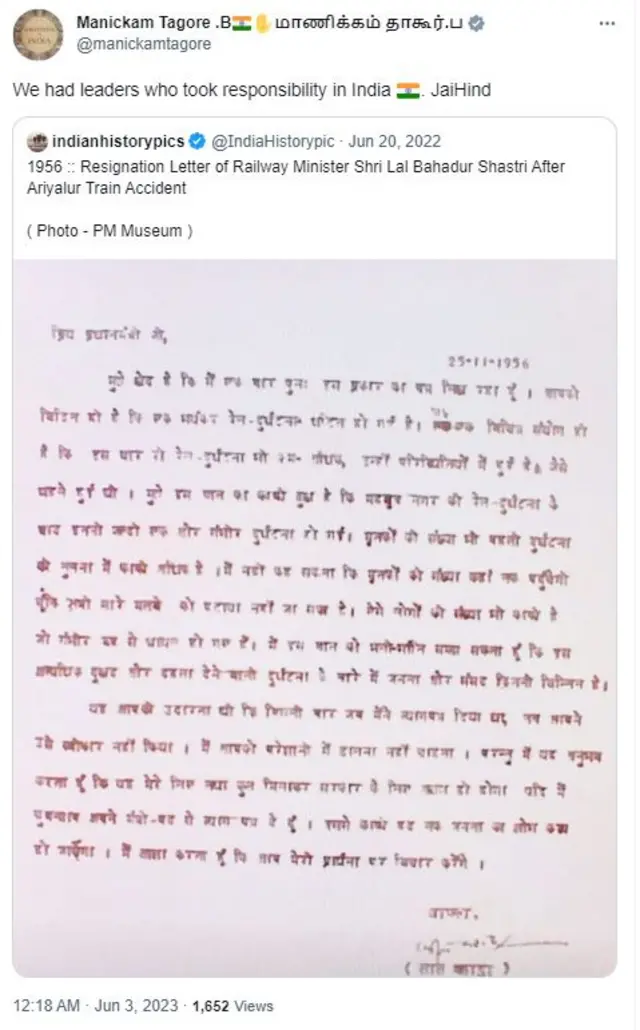 Manickam Tagore .B🇮🇳✋மாணிக்கம் தாகூர்.ப
@manickamtagore
We had leaders who took responsibility in India 🇮🇳. JaiHind
indianhistorypics @IndiaHistorypic · Jun 20, 2022
1956 :: Resignation Letter of Railway Minister Shri Lal Bahadur Shastri After
Ariyalur Train Accident
( Photo - PM Museum )
प्रिय प्रधानमंत्री जी,
25-11-1956
मुझे खेद है कि मैं एक बार पुनः इस प्रकार का पत्र लिख रहा हूँ । आपको
विदित ही है कि एक भयंकर रेल-दुर्घटना घटित हो गई है। एक विचित्र संयोग ही
है कि इस बार भी रेल-दुर्घटना उन्हीं परिस्थितियों में हुई है, जैसे
पहले हुई थी । मुझे इस बात का काफी दुख है कि महबूब नगर की रेल-दुर्घटना के
बाद इतनी जल्दी एक और गंभीर दुर्घटना हो गई। मृतकों की संख्या भी पहली दुर्घटना
की तुलना में काफी अधिक है । मैं नहीं कह सकता कि मृतकों की संख्या कहाँ तक पहुँचेगी
चूँकि अभी सारे मलबे को हटाया नहीं जा सका है। ऐसे लोगों की संख्या भी काफी है
जो गंभीर रूप से घायल हो गए हैं। मैं इस बात को भली-भाँति समझ सकता हूँ कि इस
अत्यधिक दुखद और दहला देने वाली दुर्घटना के बारे में जनता और संसद कितनी चिन्तित है।
यह आपकी उदारता थी कि पिछली बार जब मैंने त्यागपत्र दिया था, तब आपने
उसे स्वीकार नहीं किया । मैं आपको परेशानी में डालना नहीं चाहता । परन्तु मैं यह अनुभव
करता हूँ कि यह मेरे लिए तथा कुल मिलाकर सरकार के लिए अच्छा ही होगा यदि मैं
चुपचाप अपने मंत्री-पद से त्याग पत्र दे दूँ । इससे काफी हद तक जनता का क्षोभ कम
हो जाएगा । मैं आशा करता हूँ कि आप मेरी प्रार्थना पर विचार करेंगे ।
आपका,
12:18 AM · Jun 3, 2023 · 1,652 Views